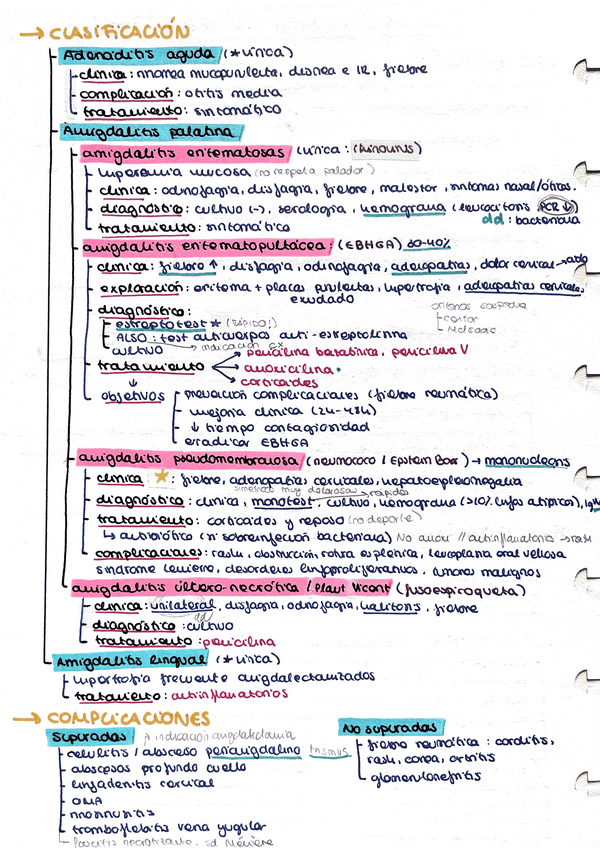 → CLASIFICACIÓN
Adenoiditis aguda (*vírica)
clínica: rinorrea mucopurulenta, disnea e IR, fiebre
complicación: otitis media
tratamiento: sintomático
Amigdalitis palatina
amigdalitis eritematosas (vírica:
hiperemia mucosa (no respeta paladar)
clínica: odinofagia, disfagia, fiebre, malestar, síntomas nasal/óticos.
diagnóstico: cultivo (-), serología, hemograma (leucocitosis, PCR ↓)
dd: bacteriana
tratamiento: sintomático
amigdalitis eritematopultácea: (EBHGA) 30-40%
clínica: fiebre ↑, disfagia, odinofagia, adenopatías, dolor cervical
exploración: eritema + placas purulentas, hipertrofia, adenopatías cervicales,
exudado
diagnóstico:
estreptotest * (rápido!)
ALSO: test anticuerpos anti-estreptolisina
cultivo → indicación
criterios sospecha
Centor
McIsaac
tratamiento → penicilina benzatínica, penicilina V
→ amoxicilina
→ corticoides
↓
objetivos
prevención complicaciones (fiebre reumática)
mejoría clínica (24-48h)
↓ tiempo contagiosidad
erradicar EBHGA
amigdalitis pseudomembranosa (neumococo / Epstein Barr) → mononucleosis
clínica ★: fiebre, adenopatías cervicales, hepatoesplenomegalia
simétricas muy dolorosas → rápidas
diagnóstico: clínica, monotest, cultivo, hemograma (>10% linfos atípicos), IgM
tratamiento: corticoides y reposo (no deporte)
↳ antibiótico (si sobreinfección bacteriana) No amox // antiinflamatorio → rash
complicaciones: rash, obstrucción, rotura esplénica, leucoplasia oral vellosa
síndrome Lemierre, desórdenes linfoproliferativos, tumores malignos
amigdalitis úlcero-necrótica / Plaut Vicent (fusoespiroqueta)
clínica: unilateral, disfagia, odinofagia, halitosis, fiebre
dd
diagnóstico: cultivo
tratamiento: penicilina
Amigdalitis lingual (*vírica)
hipertrofia frecuente amigdalectomizados
tratamiento: antiinflamatorios
→ COMPLICACIONES
Supuradas → indicación amigdalectomía
celulitis / absceso periamigdalino trismus
abscesos profundo cuello
linfadenitis cervical
OMA
rinosinusitis
tromboflebitis vena yugular
fascitis necrotizante, sd
No supuradas
fiebre reumática: carditis,
rash, corea, artritis
glomerulonefritis